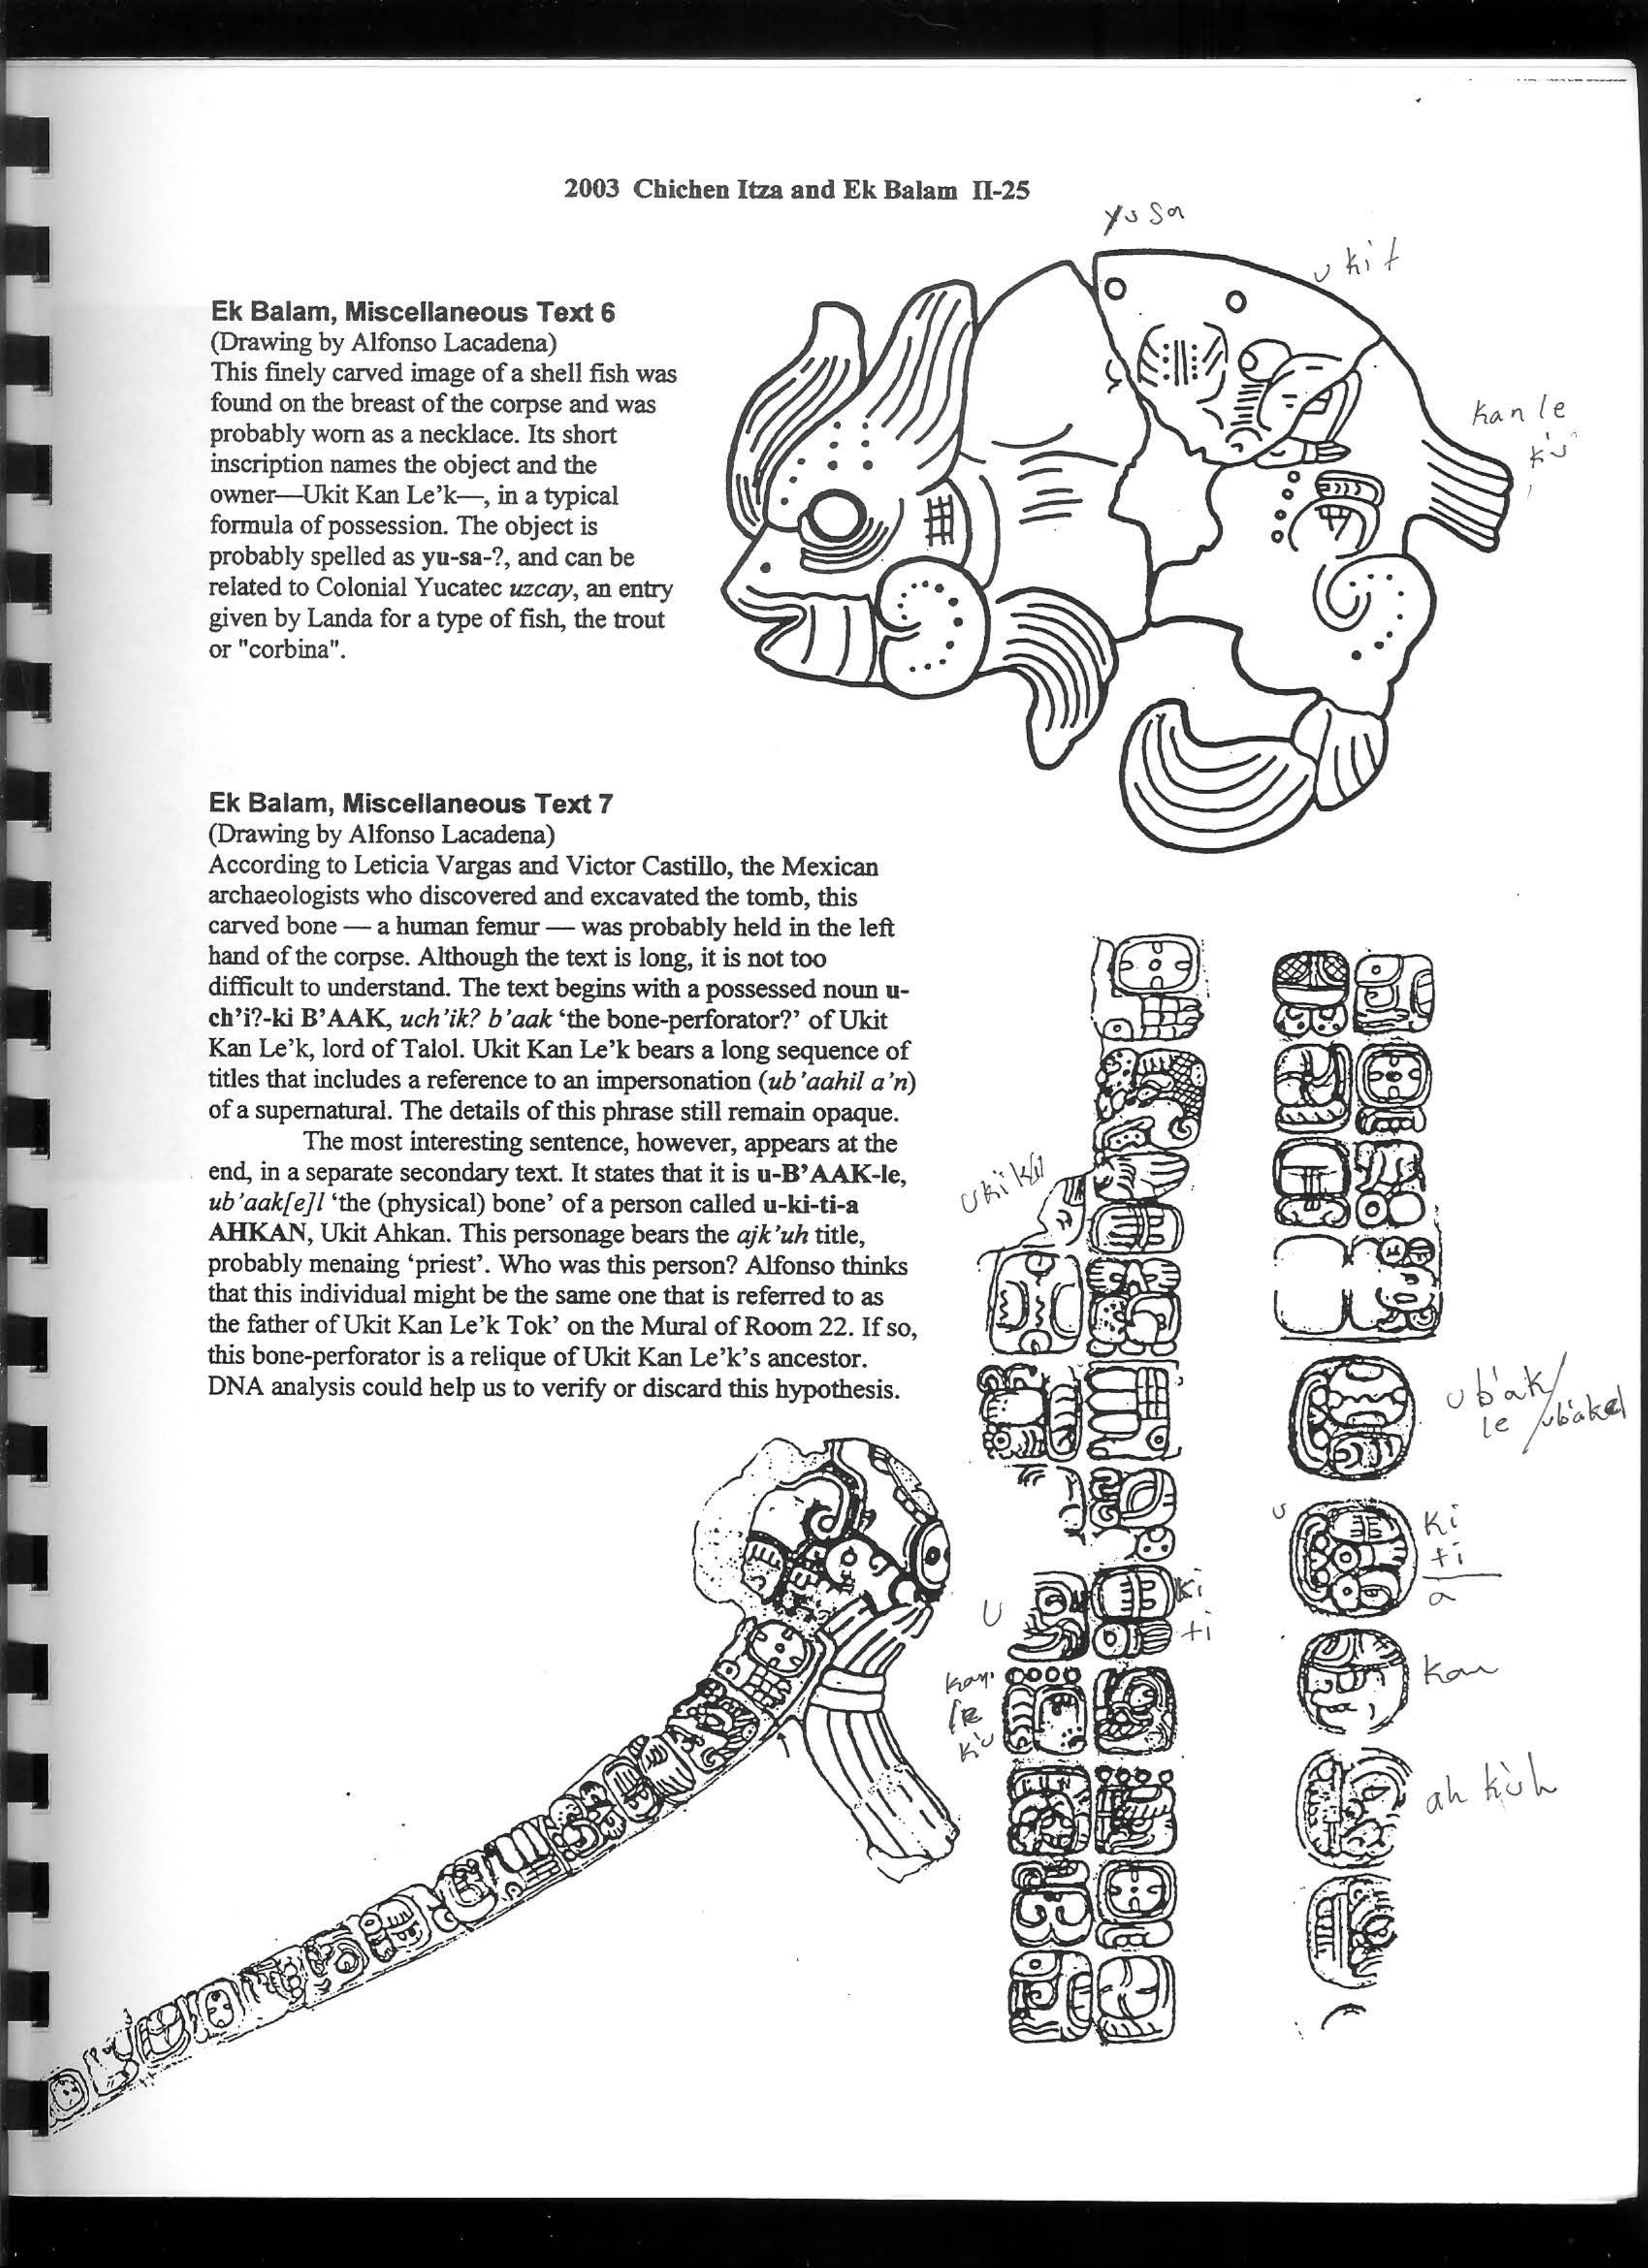 2003 Chichen Itza and Ek Balam II-25
yusa
ukit
kan le
k'u
Ek Balam, Miscellaneous Text 6
(Drawing by Alfonso Lacadena)
This finely carved image of a shell fish was
found on the breast of the corpse and was
probably worn as a necklace. Its short
inscription names the object and the
owner—Ukit Kan Le'k—, in a typical
formula of possession. The object is
probably spelled as yu-sa-?, and can be
related to Colonial Yucatec uzcay, an entry
given by Landa for a type of fish, the trout
or "corbina".
Ek Balam, Miscellaneous Text 7
(Drawing by Alfonso Lacadena)
According to Leticia Vargas and Victor Castillo, the Mexican
archaeologists who discovered and excavated the tomb, this
carved bone — a human femur — was probably held in the left
hand of the corpse. Although the text is long, it is not too
difficult to understand. The text begins with a possessed noun u-
ch'i?-ki B'AAK, uch'ik? b'aak 'the bone-perforator?' of Ukit
Kan Le'k, lord of Talol. Ukit Kan Le'k bears a long sequence of
titles that includes a reference to an impersonation (ub'aahil a'n)
of a supernatural. The details of this phrase still remain opaque.
The most interesting sentence, however, appears at the
end, in a separate secondary text. It states that it is u-B'AAK-le,
ub'aak[e]l 'the (physical) bone' of a person called u-ki-ti-a
AHKAN, Ukit Ahkan. This personage bears the ajk'uh title,
probably menaing 'priest'. Who was this person? Alfonso thinks
that this individual might be the same one that is referred to as
the father of Ukit Kan Le'k Tok' on the Mural of Room 22. If so,
this bone-perforator is a relique of Ukit Kan Le'k's ancestor.
DNA analysis could help us to verify or discard this hypothesis.
u
ki
ti
kan
le
k'u
ub'ak/
le /ub'akel
u
ki
ti
a
kan
ah k'uh